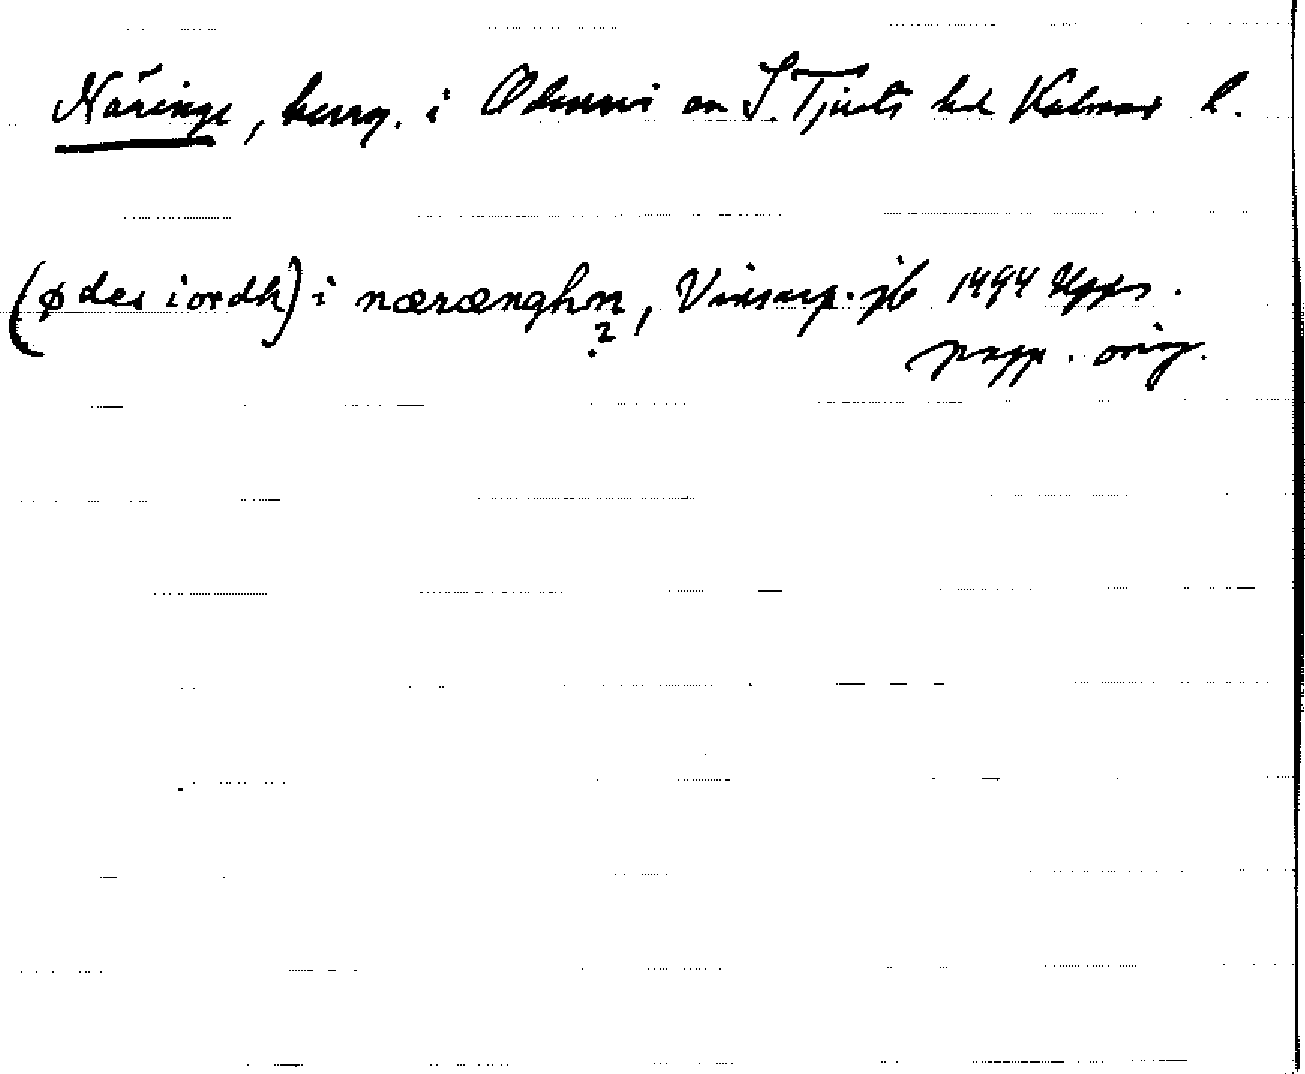 Näringe, herrg. i Ödensvi sn S. Tjusts hd Kalmar l.
(ødes iordh) i nærænghm, Vinstorp. jb 1494 Upps.
?
papp. orig.